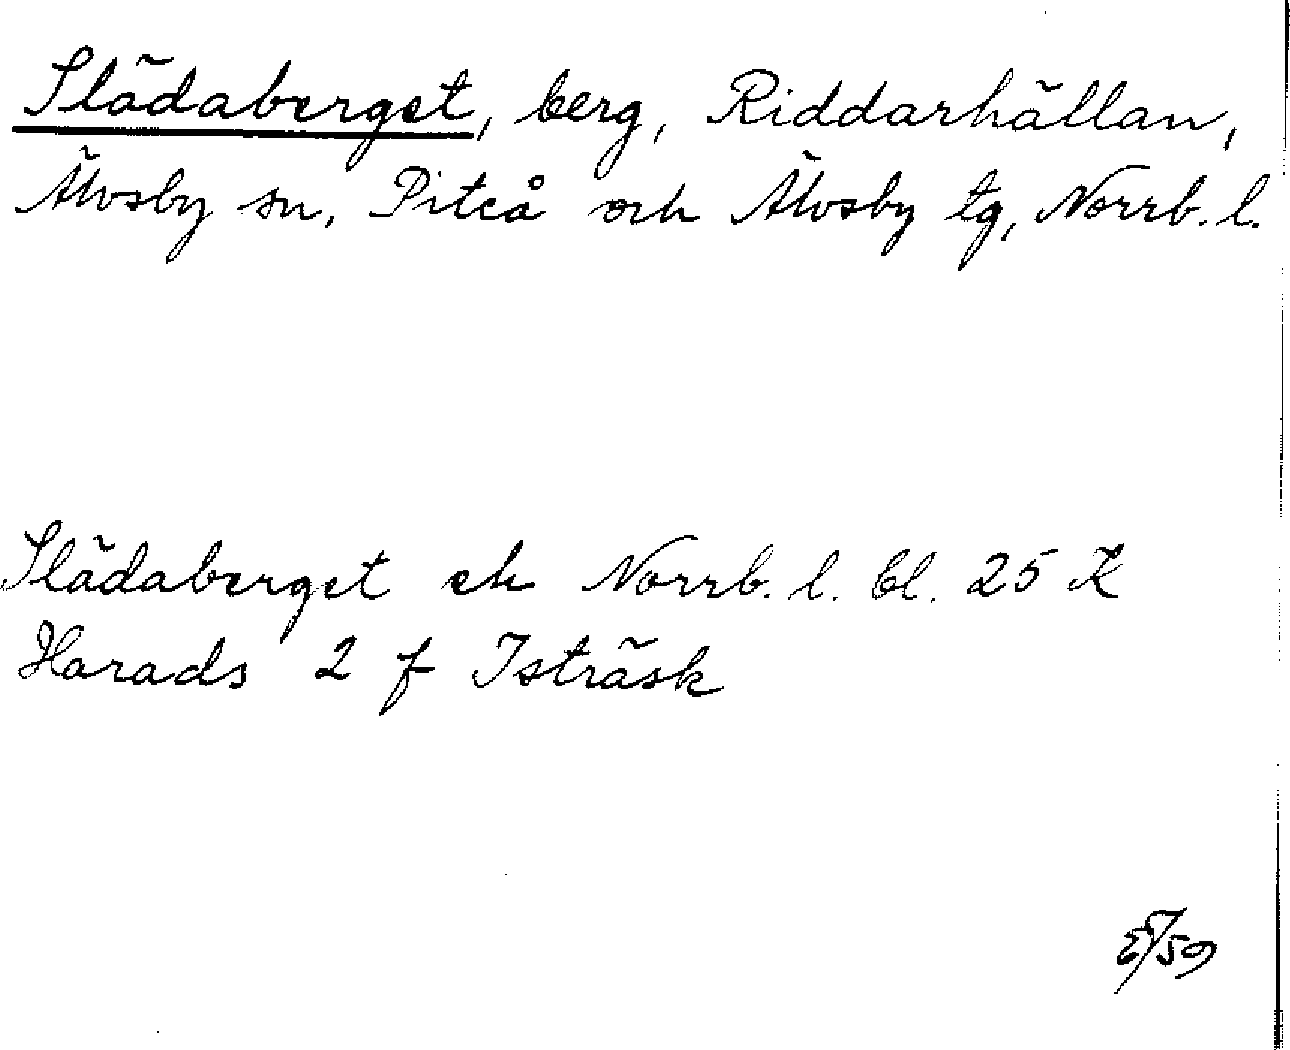 Slädaberget, berg, Riddarhällan,
Älvsby sn, Piteå och Älvsby tg, Norrb. l.
Slädaberget ek Norrb. l. bl. 25 K
Harads 2 f Isträsk